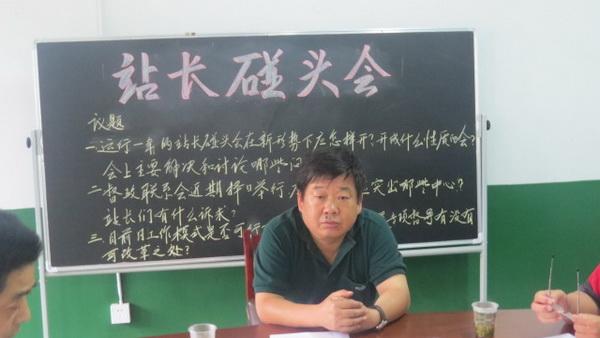 站长碰头会
议题
一.运行一年的站长碰头会在新形势下应怎样开?开成什么性质的会?
会上主要解决和讨论哪些问
二.督政联系会近期择日举行 突出哪些中心?
站长们有什么诉求?
三.目前日工作模式是否可行 专项督导有没有
可改革之处?